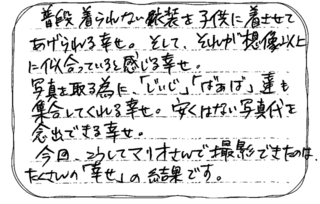 普段着られない衣装を子供に着させて
あげられる幸せ。そして、それが想像以上
に似合っていると感じる幸せ。
写真を取る為に、「じいじ」「ばあば」達も
集合してくれる幸せ。安くはない写真代を
念出できる幸せ。
今回、こうしてマリオさんで撮影できたのは、
たくさんの「幸せ」の結果です。